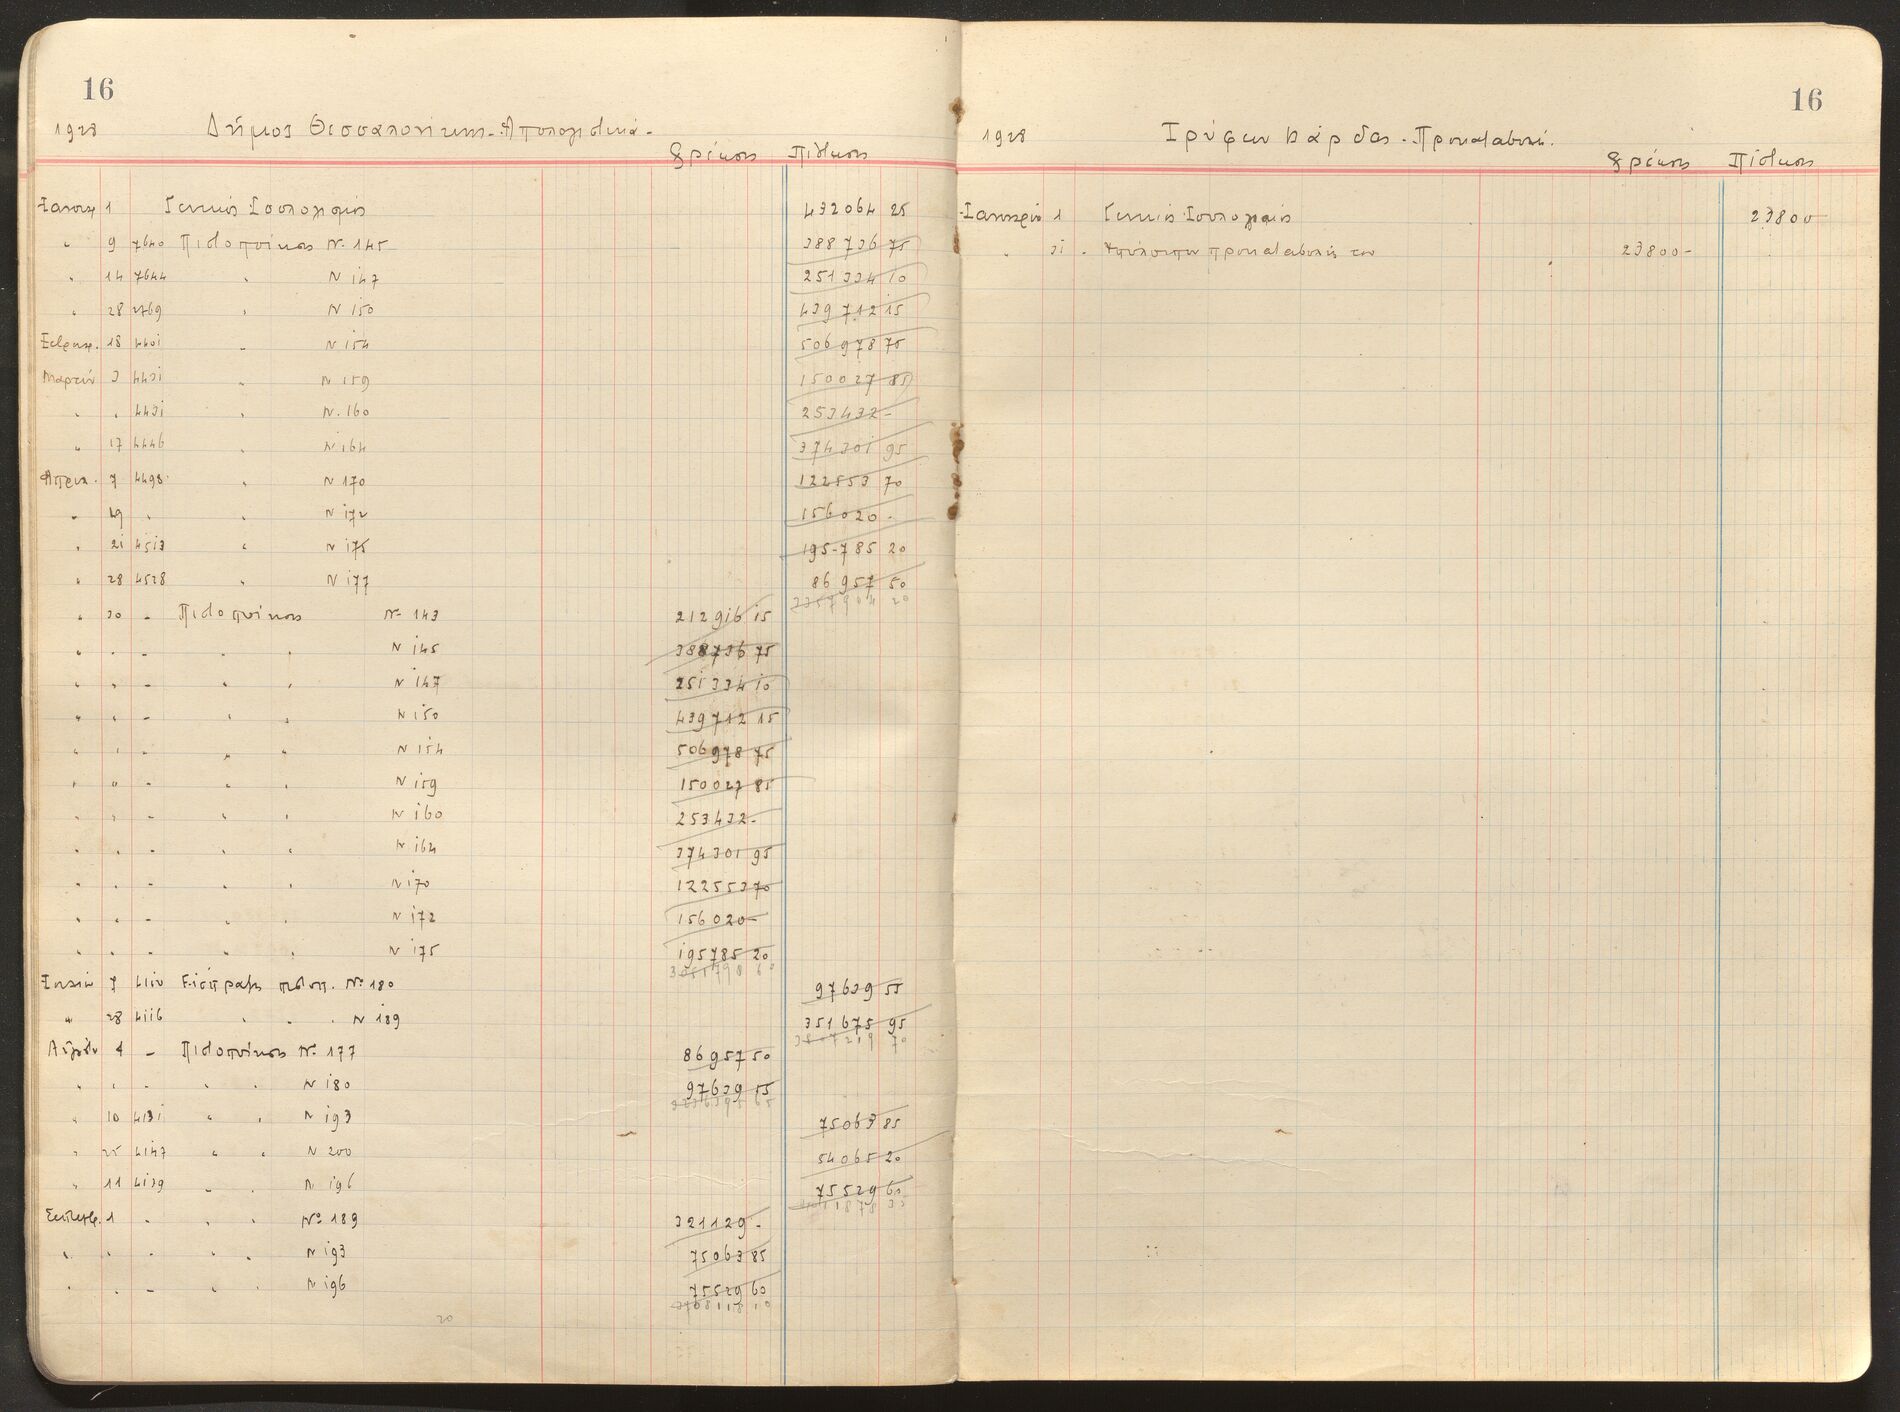 16
1928 Δήμος Θεσσαλονίκης - Απολογιστικά -
Χρέωσις Πίστωσις
Ιανουαρ 1 Γενικός Ισολογισμός 432064 25
" 9 7640 Πιστοποίησις N. 145 388736 75
" 14 7644 " N 147 251334 10
" 28 2769 " N 150 439712 15
Φεβρουαρ. 18 4401 " N 154 506978 75
Μαρτίου 3 4431 " N 159 150027 85
" " 4431 " N. 160 253432 -
" 17 4446 " N 164 374301 95
Απριλ. 7 4498 " N 170 122553 70
" 19 " " N 172 156020 -
" 21 4513 " N 175 195785 20
" 28 4528 " N 177 86957 50
" 30 - Πιστοποίησις No 143 212916 15
" " - " " N 145 388736 75
" " - " " N 147 251334 10
" " - " " N 150 439712 15
" " - " " N 154 506978 75
" " - " " N 159 150027 85
" " - " " N 160 253432 -
" " - " " N 164 374301 95
" " - " " N 170 122553 70
" " - " " N 172 156020 -
" " - " " N 175 195785 20
3051798 60
7 Είσπραξις πιστοπ. No 180 97639 55
" 28 4116 " " N 189 351675 95
3807219 70
Αύγούστου 4 - Πιστοποίησις No 177 86957 50
" " - " " N 180 97639 55
3236395 65
" 10 4131 " " N 193 75063 85
" 25 4147 " " N 200 54065 20
" 11 4139 " " N 196 75529 60
Σεπτεμβ. 1 - " " No 189 321129 -
" " - " " N 193 75063 85
" " - " " N 196 75529 60
3708118 10
20
16
1928 Τρύφων Κάρδας - Προκαταβολή.
Χρέωσις Πίστωσις
Ιανουαρίου 1 Γενικός Ισολογισμός 23800 -
" 31 - Υπόλοιπον προκαταβολής του 23800 -